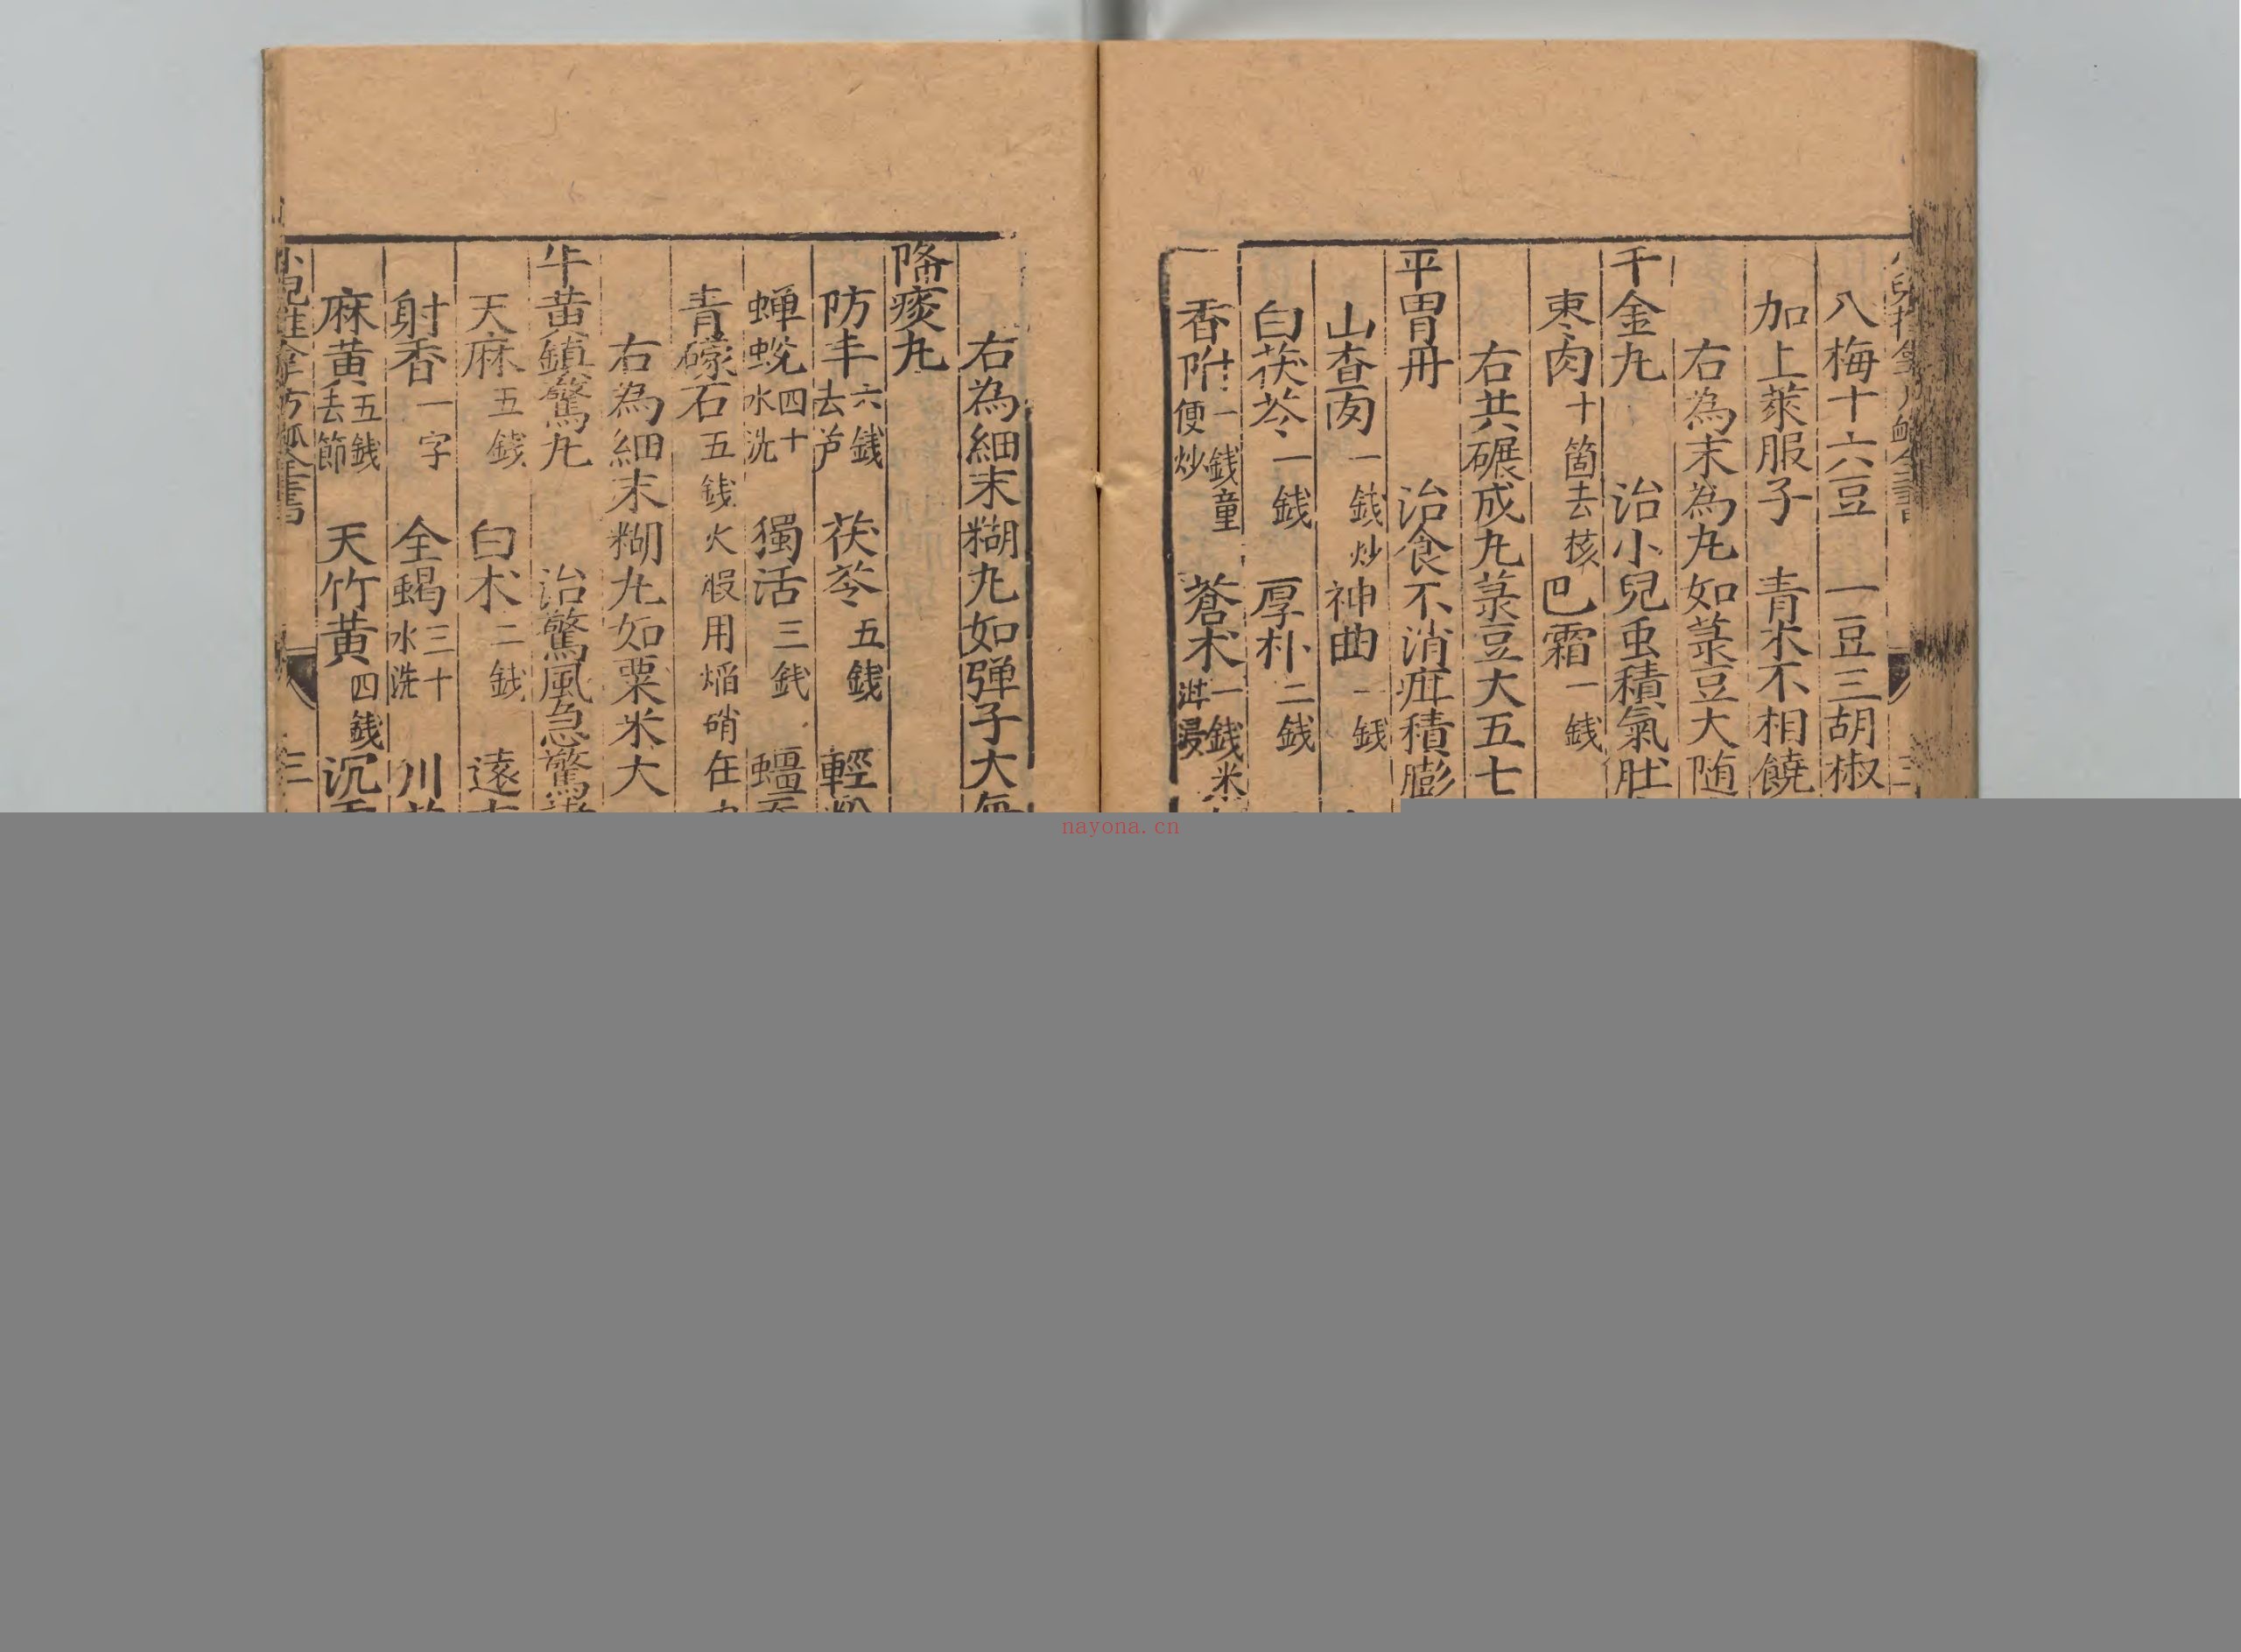 八梅十六豆 一豆三胡椒
加上萊服子 青木不相饒
右為末為丸如菉豆大随
千金丸 治小兒虫積氣肚
枣肉十箇去核 巴霜一錢
右共碾成丸菉豆大五七
平胃丹 治食不消疰積膨
山查肉一錢炒 神曲一錢
白茯苓一錢 厚朴二錢
香附一錢童便炒 蒼术一錢米泔浸
右為細末糊丸如弹子大每
降痰丸
防丰六錢去芦 茯苓五錢 輕粉
蝉蛻四十水洗 獨活三錢 蠶
青礞石五錢火煅用焰硝在
右為細末糊丸如粟米大
牛黄鎮驚丸 治驚風急驚
天麻五錢 白术二錢 遠
射香一字 全蝎三十水洗 川
麻黄五錢去節 天竹黄四錢 沉
三
nayona.cn